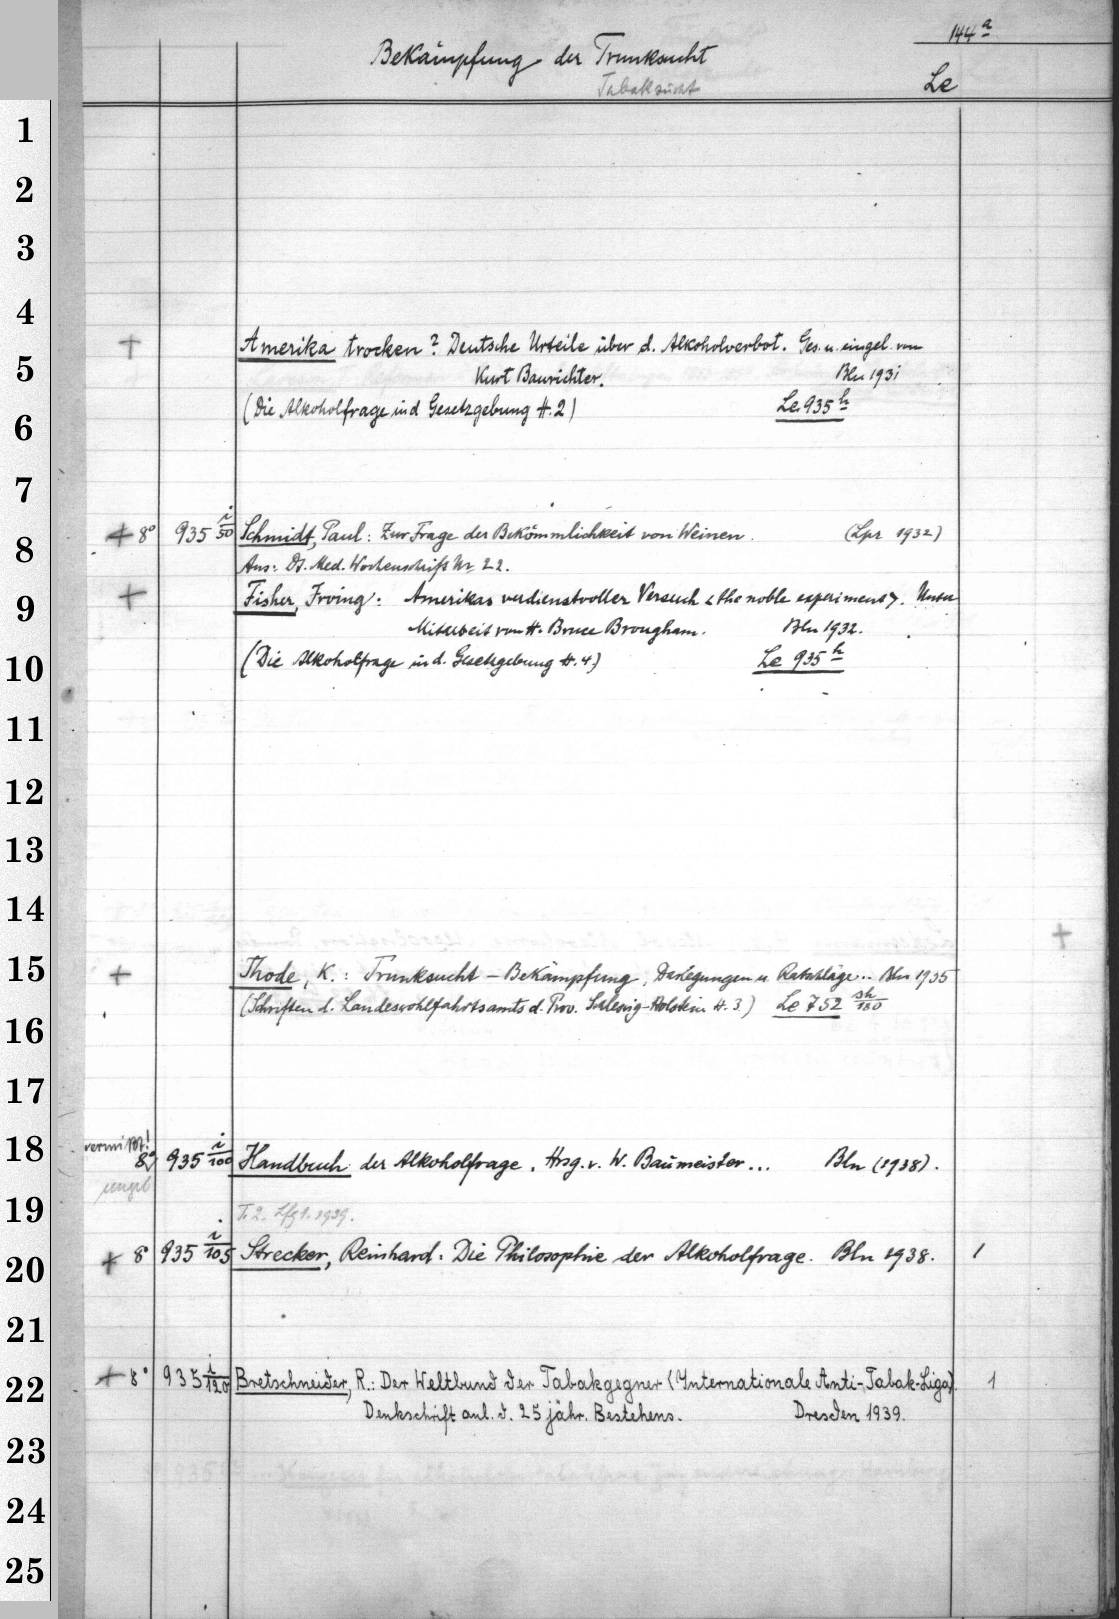 144 a
Bekämpfung der Trunksucht
Tabaksucht
Le
1
2
3
4
+ Amerika trocken? Deutsche Urteile über d. Alkoholverbot. Ges. u. eingel. von
5 Kurt Baurichter. Bln 1931
6 (Die Alkoholfrage in d Gesetzgebung H. 2) Le 935 h
7
8 + 8° 935 i/50 Schmidt, Paul: Zur Frage der Bekömmlichkeit von Weinen. (Lpz 1932)
Aus: Dt. Med. Wochenschrift Nr 22.
9 + Fisher, Irving: Amerikas verdienstvoller Versuch <the noble experiment>. Unter
Mitarbeit von H. Bruce Brougham. Bln 1932.
10 (Die Alkoholfrage in d. Gesetzgebung H. 4) Le 935 h
11
12
13
14
+
15 + Thode, K.: Trunksucht-Bekämpfung, Darlegungen u. Ratschläge.. Bln 1935
(Schriften d. Landeswohlfahrtsamts d. Prov. Schleswig-Holstein H. 3.) Le 752 sh/180
16
17
18 vermißt! 8° 935 i/100 Handbuch der Alkoholfrage. Hrsg. v. W. Baumeister... Bln (1938).
19 T. 2. Lfg 1. 1939.
20 + 8° 935 i/105 Strecker, Reinhard: Die Philosophie der Alkoholfrage. Bln 1938. 1
21
22 + 8° 935 i/120 Bretschneider, R.: Der Weltbund der Tabakgegner (Internationale Anti-Tabak-Liga). 1
Denkschrift anl. d. 25 jähr. Bestehens. Dresden 1939.
23
24
25